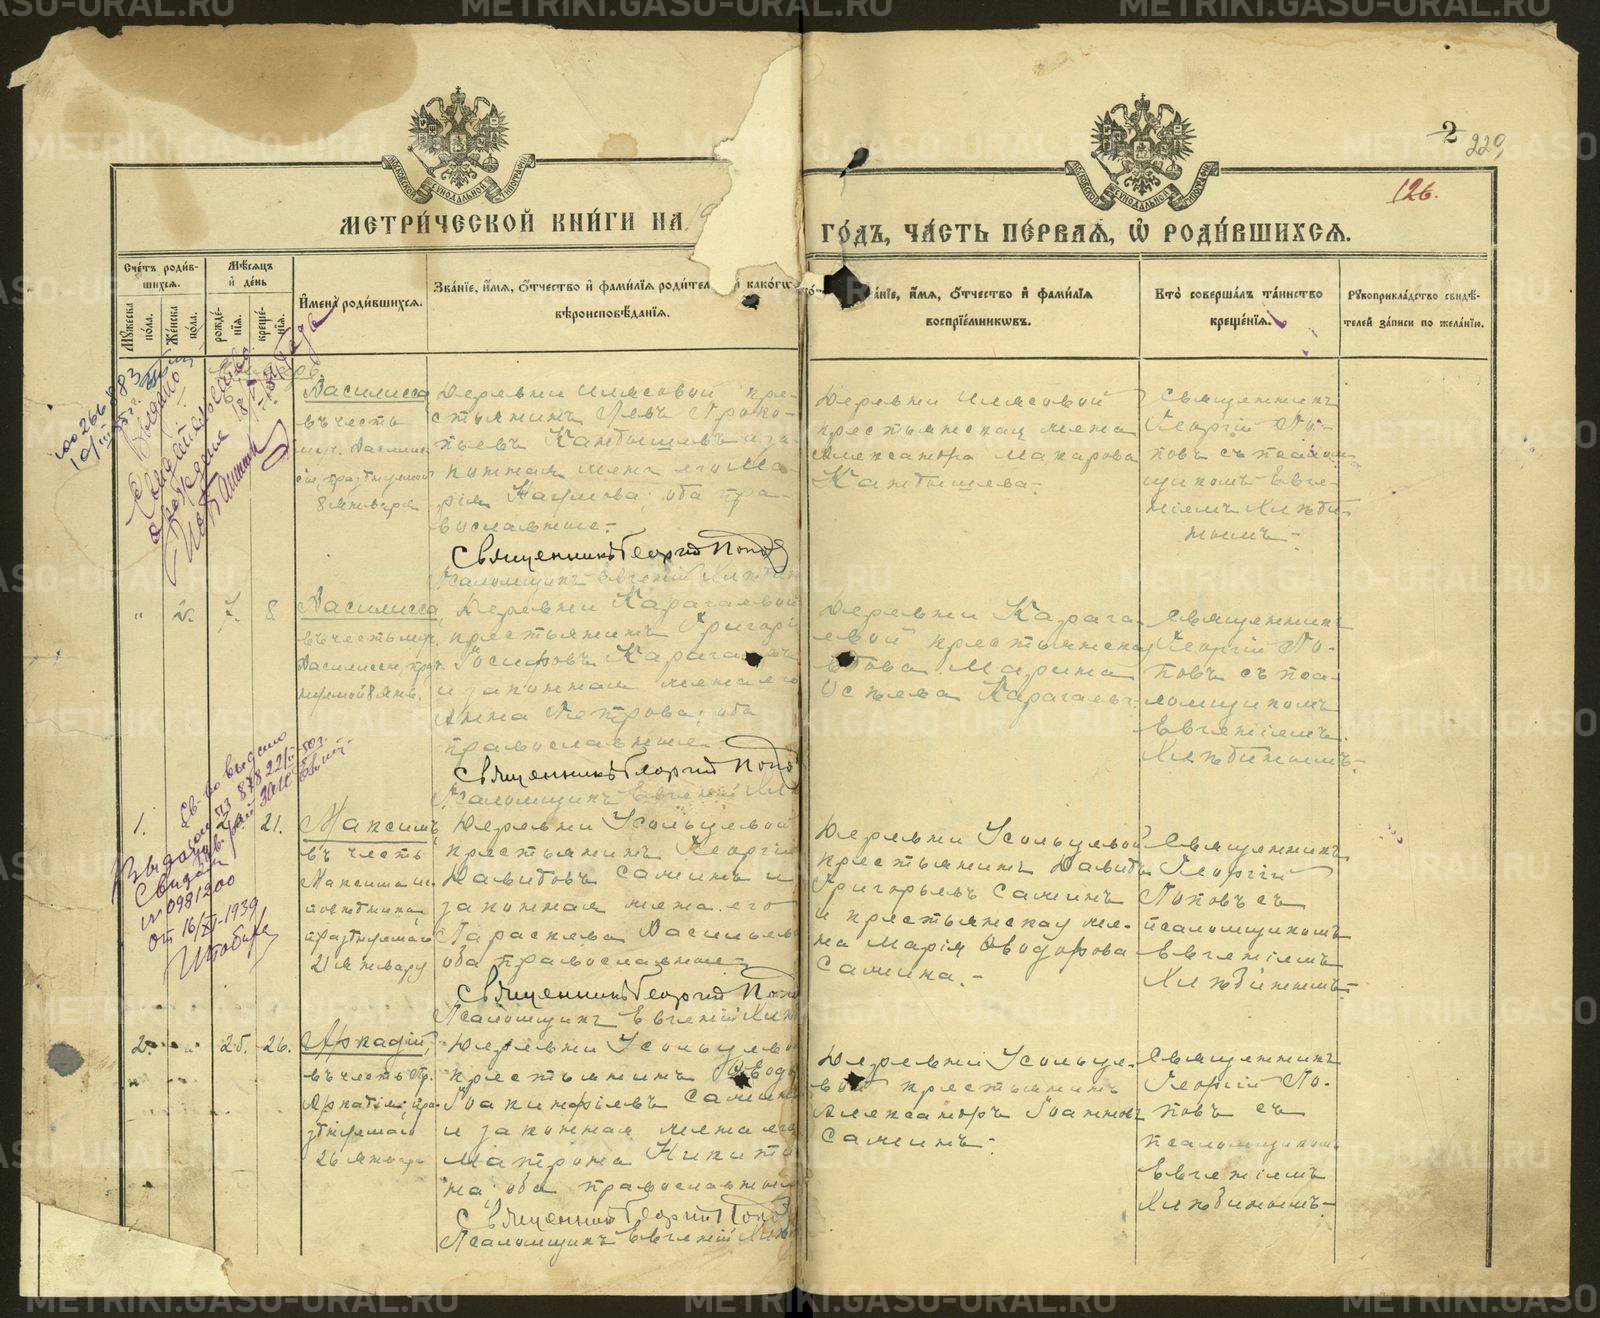 METRIKI.GASO-URAL.RU
МОСКОВСКОЙ СѴНОДАЛЬНОЙ ТИПОГРАФІИ
МОСКОВСКОЙ СѴНОДАЛЬНОЙ ТИПОГРАФІИ
2
229
126.
МЕТРИ́ЧЕСКОЙ КНИ́ГИ НА 19
ГО́ДЪ, ЧА́СТЬ ПЕ́РВАѦ, Ѽ РОДИ́ВШИХСѦ.
Сче́тъ роди́в-
шихсѧ.
Мꙋ́жеска по́ла.
Же́нска по́ла.
Мѣ́сѧцъ
и҆ де́нь
рожде́-
нїѧ.
креще́-
нїѧ.
И҆мена̀ роди́вшихсѧ.
Зва́нїе, и҆́мѧ, ѻ҆́тчество и҆ фами́лїѧ роди́тел й како́гѡ
вѣроисповѣ́данїѧ.
а́нїе, и҆́мѧ, ѻ҆́тчество и҆ фами́лїѧ
воспрїе́мникѡвъ.
Кто̀ соверша́лъ та́инство
креще́нїѧ.
Рꙋкоприкла́дство свидѣ́-
телей за́писи по жела́нїю.
Василисса
въ честь
муч. Василис-
сы, празднуемой
8 января
Деревни Илясовой кре-
стьянинъ Левъ Проко-
пьевъ Кандышевъ и за-
конная жена его Ма-
рія Наумова; оба пра-
вославные.-
Священникъ Георгій Попов
Псаломщикъ Евгеній Хлѣбин
Деревни Илясовой
крестьянская жена
Александра Макарова
Кандышева.-
Священникъ
Георгій По-
повъ съ псалом-
щикомъ Евге-
ніемъ Хлѣби-
нымъ.-
" 2. 7. 8.
Василисса,
въ честь муч.
Василиссы, празд-
нуемой 8 янв.
Деревни Карагаевой
крестьянинъ Григорі
Іосифовъ Карагаевъ
и законная жена его
Анна Петрова; оба
православные.-
Священникъ Георгій Попо
Псаломщикъ Евгеній Хлѣ
Деревни Карага-
евой крестьянская
Марина
Карагаев
Священникъ
Георгій По-
повъ съ пса-
ломщикомъ
Евгеніемъ
Хлѣбинымъ.-
1. 21.
Максимъ,
въ честь
Максима ис-
повѣдника,
празднуемаго
21 январу
Деревни Усольцевой
крестьянинъ Георгій
Давидовъ Саминъ и
законная жена его
Параскева Васильев
оба православные.-
Священникъ Георгій Попо
Псаломщикъ Евгеній Хлѣ
Деревни Усольцевой
крестьянинъ Давидъ
Григорьевъ Саминъ
и крестьянская же-
на Марія Ѳеодорова
Самина.-
Священникъ
Георгій
Поповъ съ
псаломщикомъ
Евгеніемъ
Хлѣбинымъ.-
2. " 25. 26.
Аркадій,
въ честь Пр.
Аркадія, пра-
зднуемаго
26 январ
Деревни Усольцево
крестьянинъ Ѳеодо
Іоакимовъ Самин
и законная жена его
Матрона Никити-
на; оба православны
Священникъ Георгій Попо
Псаломщикъ Евгеній Хлѣб
Деревни Усольце-
вой крестьянинъ
Александръ Іоанновъ
Саминъ.-
Священникъ
Георгій По-
повъ съ
псаломщикомъ
Евгеніемъ
Хлѣбинымъ.-
Св-во выдано
Выдано
Свидет.
0981200
от 16/XI-1939